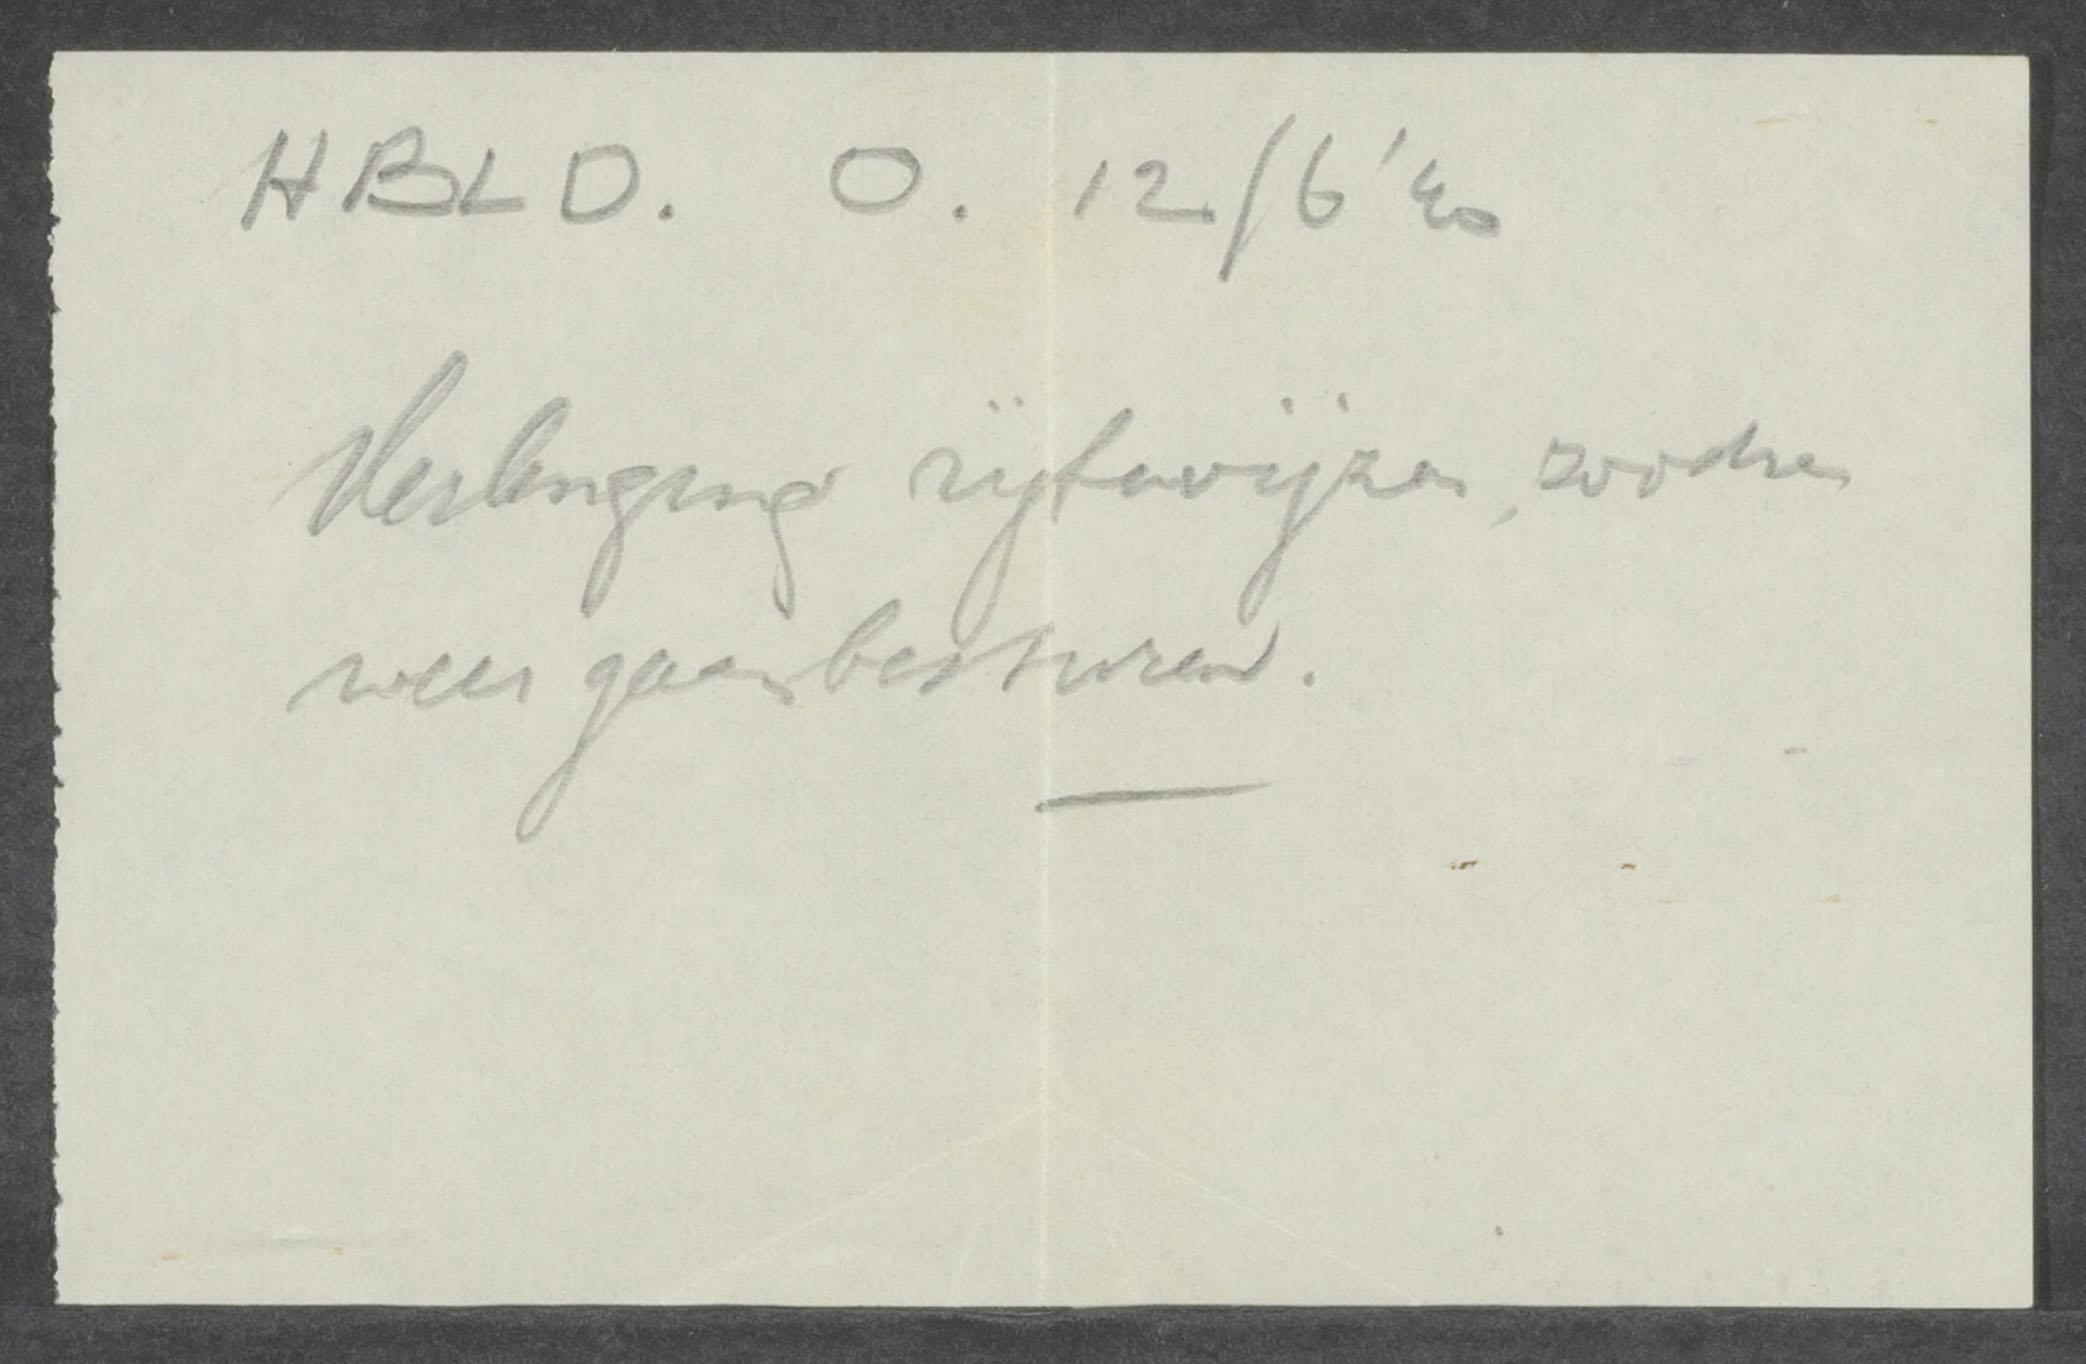 HBLD. O. 12/6 '40
Verlenging rijbewijzen, zoodra
weer gaan besturen.